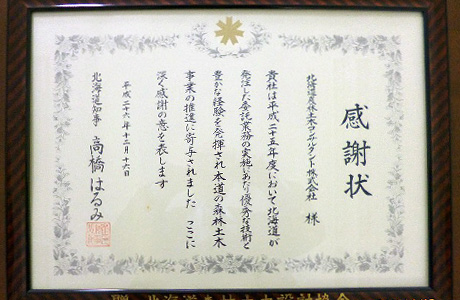 感謝状
北海道森林土木コンサルタント株式会社 様
貴社は平成二十五年度において北海道が
発注した委託業務の実施にあたり優秀な技術と
豊かな経験を発揮され本道の森林土木
事業の推進に寄与されました ここに
深く感謝の意を表します
平成二十六年十二月十六日
北海道知事 高橋はるみ